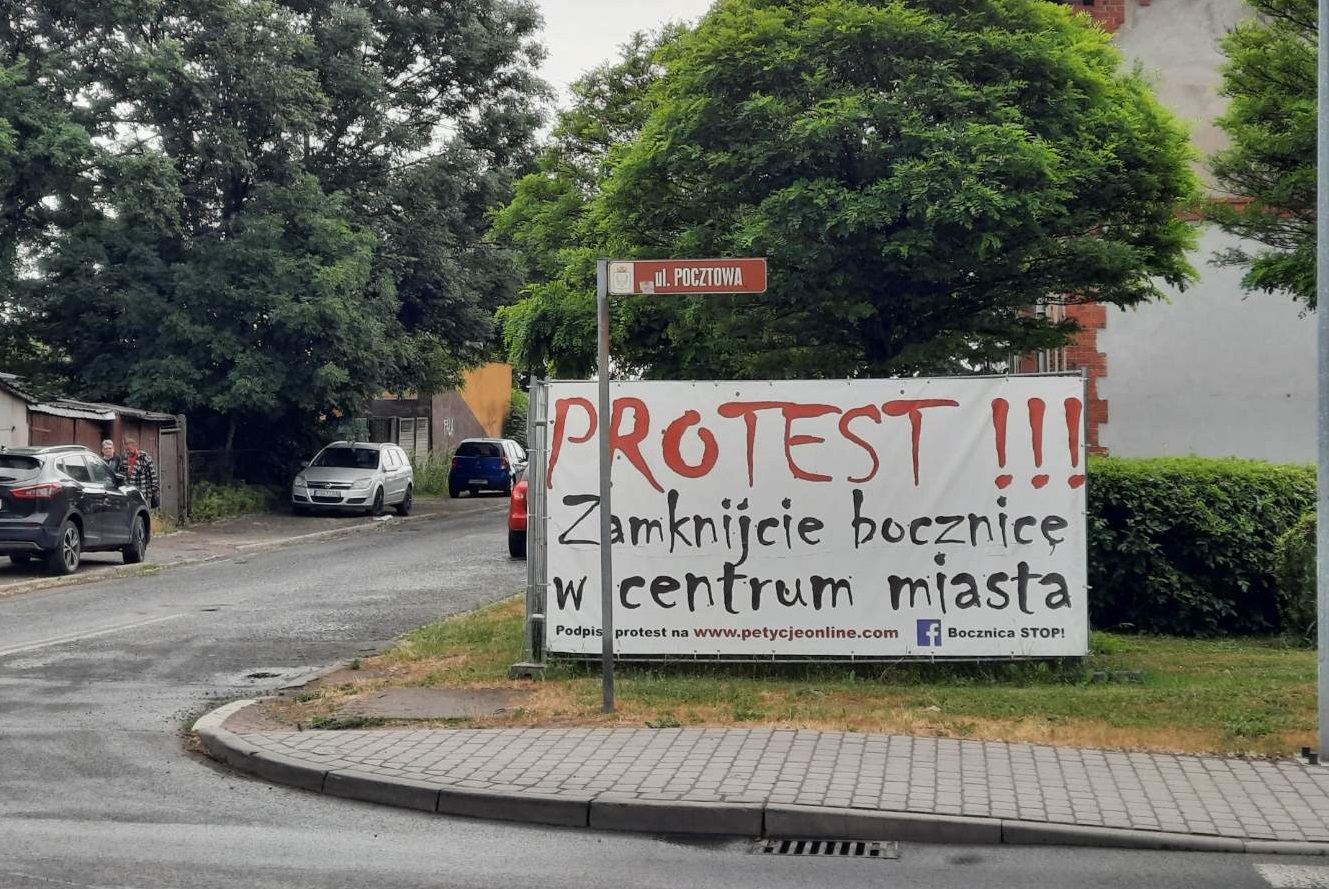 ul. POCZTOWA
PROTEST !!!
Zamknijcie bocznicę
w centrum miasta
protest na www.petycjeonline.com f Bocznica STOP!